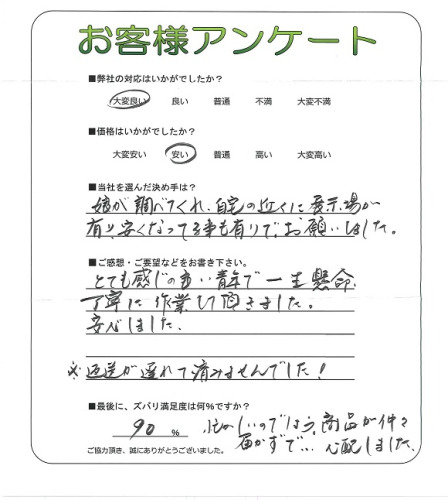 お客様アンケート
■弊社の対応はいかがでしたか？
大変良い 良い 普通 不満 大変不満
■価格はいかがでしたか？
大変安い 安い 普通 高い 大変高い
■当社を選んだ決め手は？
娘が調べてくれ、自宅の近くに展示場が
有り安くなってる事も有りで、お願いしました。
■ご感想・ご要望などをお書き下さい。
とても感じの良い青年で一生懸命、
丁寧に作業して頂きました。
安心しました、
※返送が遅れて済みませんでした！
■最後に、ズバリ満足度は何％ですか？
90 % 忙しいのでは 商品が仲々
届かずで… 心配しました、
ご協力頂き、誠にありがとうございました。